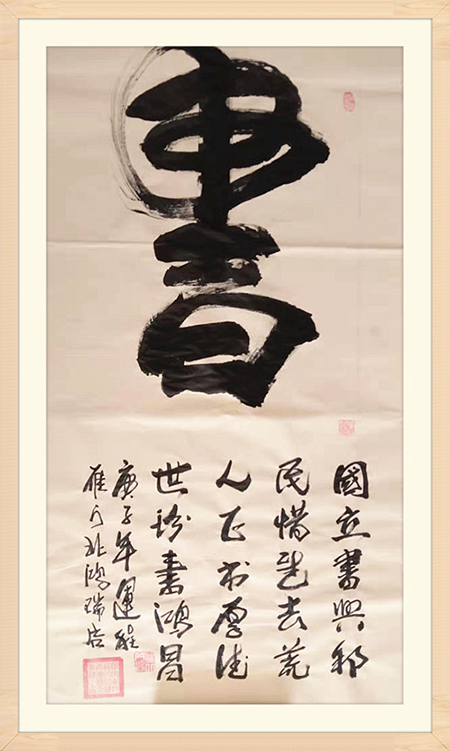 書
國立書興邦
民惜去荒
人正书厚德
世珍書鴻昌
庚子年運程
雁行北鴻瑞